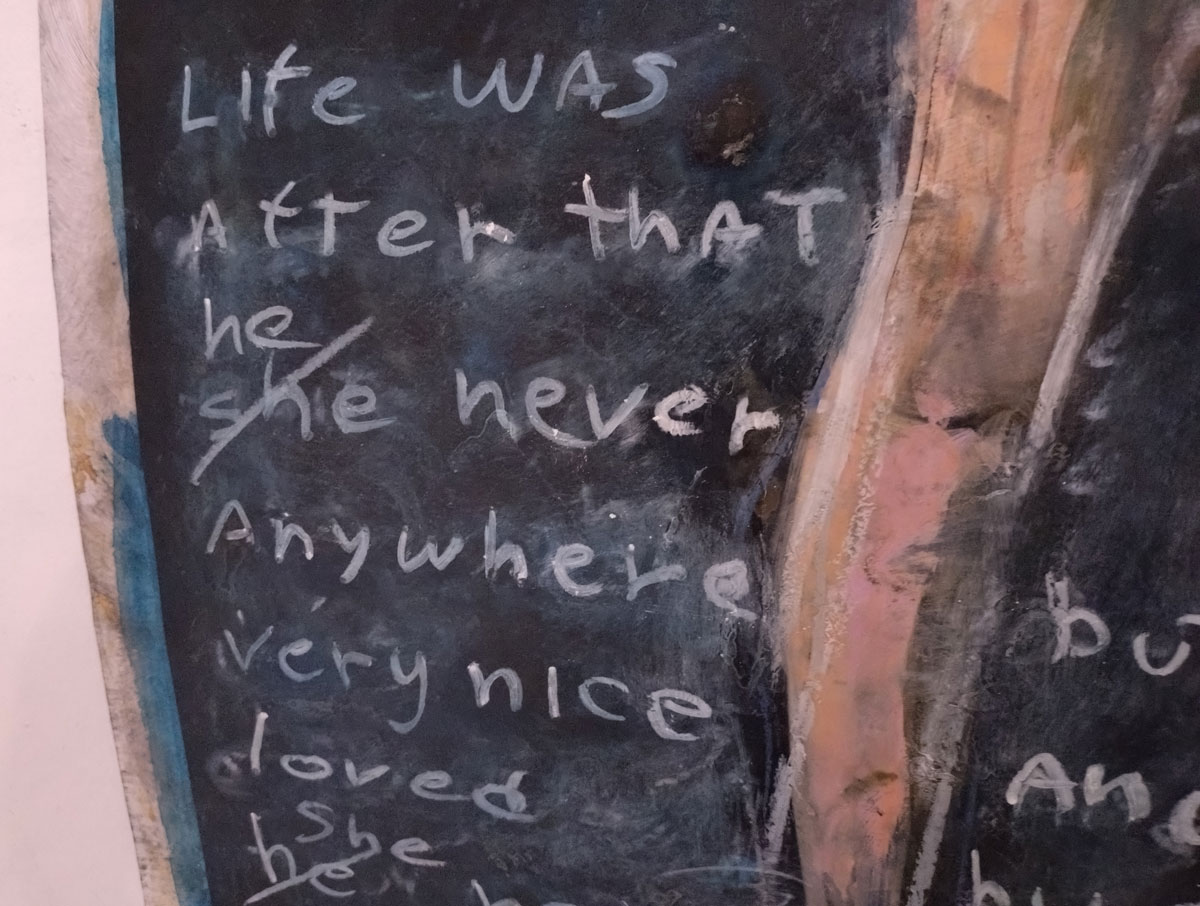 Life WAS
After thAT
he
she never
Anywhere
very nice
loved
she
he
bu
An